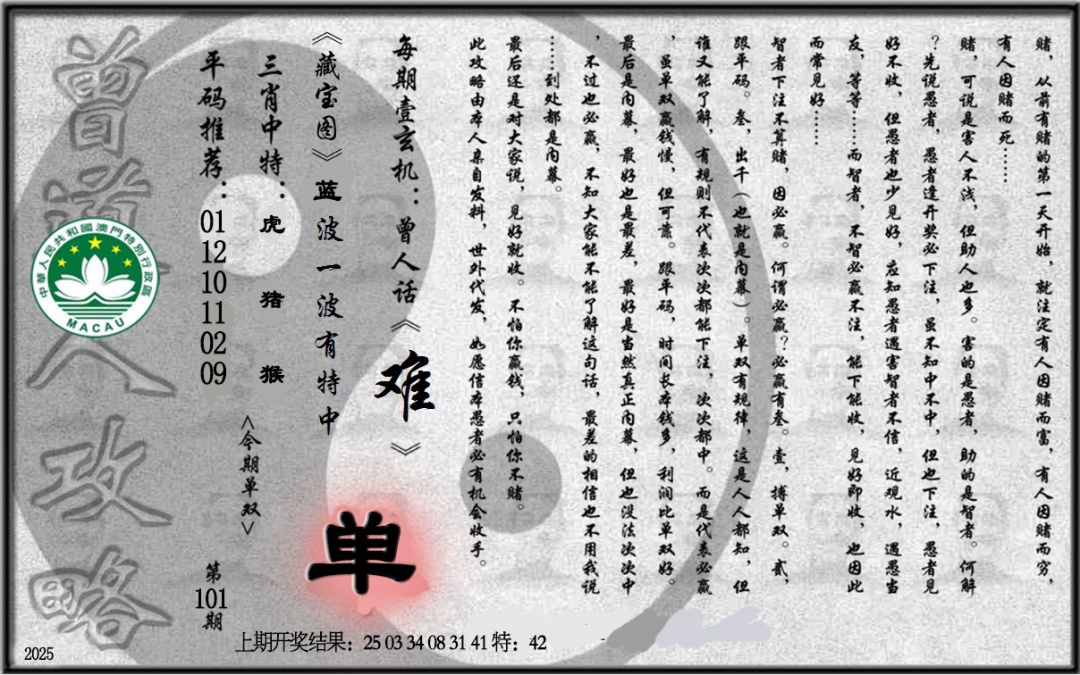 赌，从前有赌的第一天开始，就注定有人因赌而富，有人因赌而穷，
有人因赌而死……
赌，可说是害人不浅，但助人也多。害的是愚者，助的是智者。何解
？先说愚者，愚者逢开奖必下注，虽不知中不中，但也下注，愚者见
好不收，但愚者也少见好，应知愚者遇害智者不信，近观水，遇愚当
友，等等……而智者，不智必赢不注，能下能收，见好即收，也因此
而常见好……
智者下注不算赌，因必赢。何谓必赢？必赢有叁。壹，搏单双。贰，
跟平码。叁，出千（也就是内幕）。单双有规律，这是人人都知，但
谁又能了解，有规则不代表次次都能下注，次次都中。而是代表必赢
，虽单双赢钱慢，但可靠。跟平码，时间长本钱多，利润比单双好。
最后是内幕，最好也是最差，最好是当然真正内幕，但也没法次次中
，不过也必赢，不知大家能不能了解这句话，最差的相信也不用我说
……到处都是内幕。
最后还是对大家说，见好就收。不怕你赢钱，只怕你不赌。
此攻略由本人亲自发料，世外代发，如愿信本愚者必有机会收手。
每期壹玄机：曾人话《难》
《藏宝图》蓝波一波有特中
单
三肖中特：虎 猪 猴
<今期单双>
平码推荐：01 12 10 11 02 09
第101期
曾道人攻略
中華人民共和國澳門特別行政區
MACAU
上期开奖结果：25 03 34 08 31 41 特：42
2025